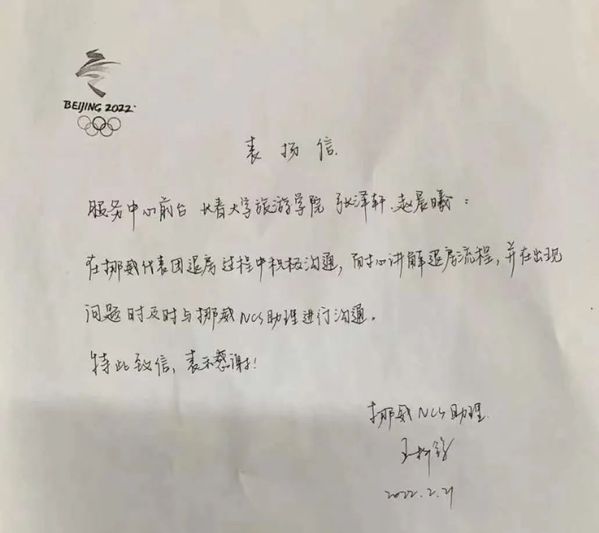 BEIJING 2022
表扬信
服务中心前台 长春大学旅游学院 张泽轩、赵晨曦：
在挪威代表团退房过程中积极沟通，耐心讲解退房流程，并在出现
问题时及时与挪威NCS助理进行沟通。
特此致信，表示感谢！
挪威NCS助理
2022.2.21